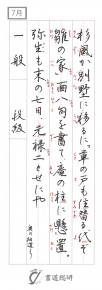 7月
杉風が別墅に移るに、草の戸も住替る代ぞ
雛の家 面八句を書て庵の柱に懸置。
弥生も末の七日、元禄二とせにや
奥の細道より
一般
段級
書道総研